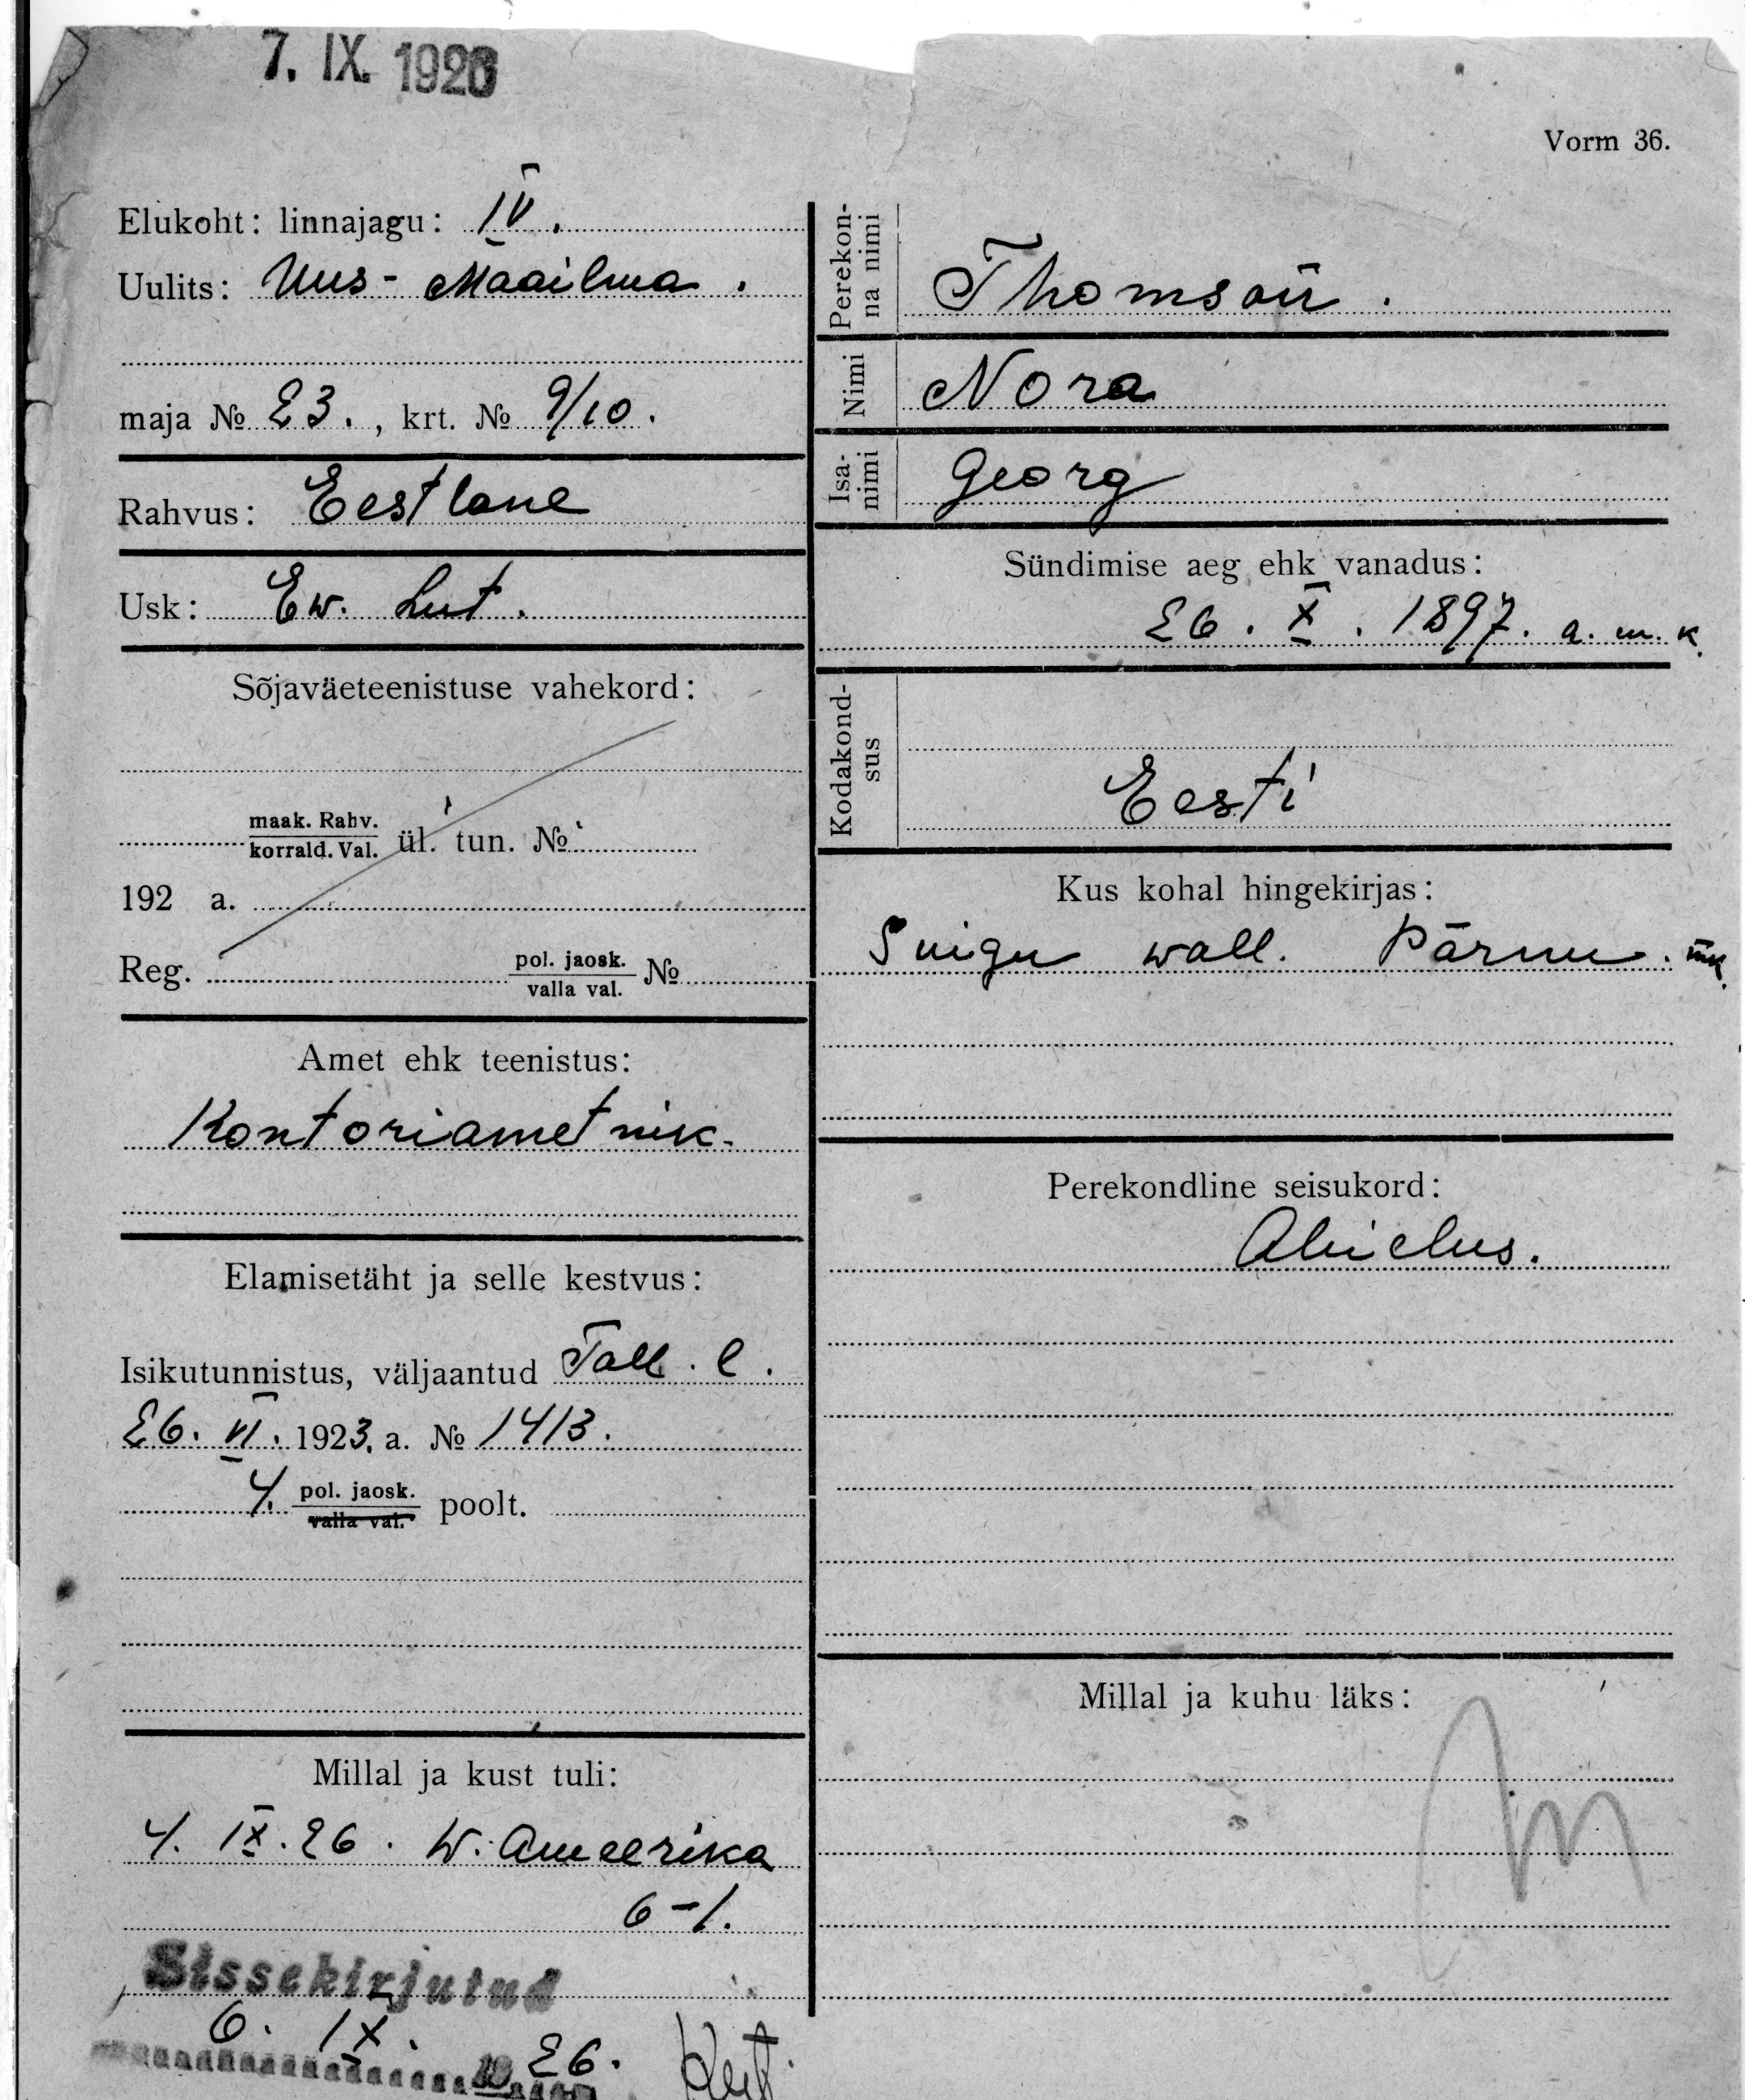 7. IX. 1926
Vorm 36.
Elukoht: linnajagu: IV.
Uulits: Uus-Maailma.
maja № 23., krt. № 9/10.
Rahvus: Eestlane
Usk: Ew. Lut.
Sõjaväeteenistuse vahekord:
maak. Rahv.
korrald. Val. ül. tun. №
192 a.
Reg. pol. jaosk.
valla val. №
Amet ehk teenistus:
Kontoriametnik.
Elamisetäht ja selle kestvus:
Isikutunnistus, väljaantud Tall. l.
26. VI. 1923. a. № 1413.
4. pol. jaosk.
valla val. poolt.
Millal ja kust tuli:
4. IX. 26. W. Ameerika
6-1.
Sissekirjutud
6. IX. 1926.
Perekon-
na nimi
Thomson.
Nimi
Nora
Isa-
nimi
Georg
Sündimise aeg ehk vanadus:
26. X. 1897. a. m. k.
Kodakond-
sus
Eesti
Kus kohal hingekirjas:
Suigu wall. Pärnu. mk.
Perekondline seisukord:
Abielus.
Millal ja kuhu läks: